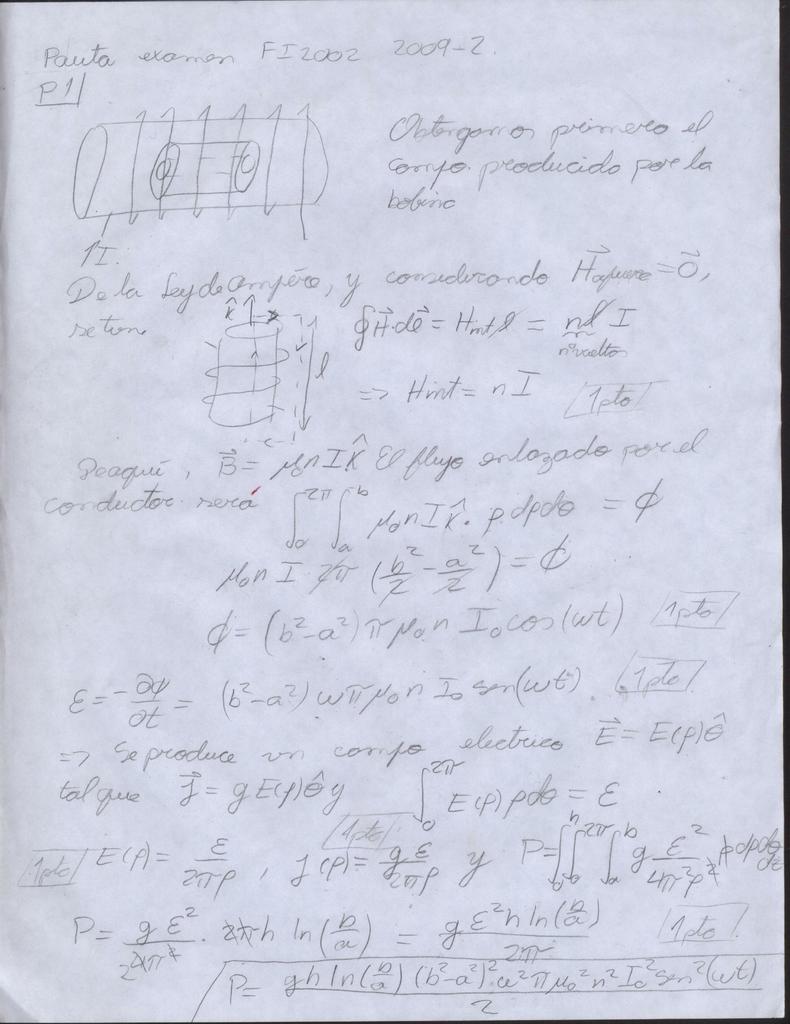 Pauta examen FI2002 2009-2.
P1
Obtengamos primero el
campo producido por la
bobina
↑I.
De la Ley de ampére, y considerando H⃗afuera = 0⃗,
se tiene
k̂
∮H⃗·dl⃗ = Hint l = nl I
nºvueltas
l
=> Hint = nI 1pto
De aquí, B⃗ = μ₀nIk̂ El flujo enlazado por el
conductor será
∫₀^2π ∫ₐ^b μ₀nIk̂ · ρdρdθ = ϕ
μ₀nI 2π (b²/2 - a²/2) = ϕ
ϕ = (b²-a²)πμ₀n I₀cos(ωt) 1pto
ε = -∂ϕ/∂t = (b²-a²)ωπμ₀n I₀ sen(ωt). 1pto
=> Se produce un campo electrico E⃗ = E(ρ)θ̂
tal que J⃗ = gE(ρ)θ̂ y ∫₀^2π E(ρ)ρdθ = ε
1pto
1pto E(ρ) = ε/2πρ, J(ρ) = gε/2πρ y P = ∫₀^h ∫₀^2π ∫ₐ^b g ε²/4π²ρ² ρdρdθdz
P = gε²/4π² · 2πh ln(b/a) = gε²h ln(b/a)/2π 1pto
P = gh ln(b/a) (b²-a²)² ω²πμ₀²n²I₀²sen²(ωt)/2